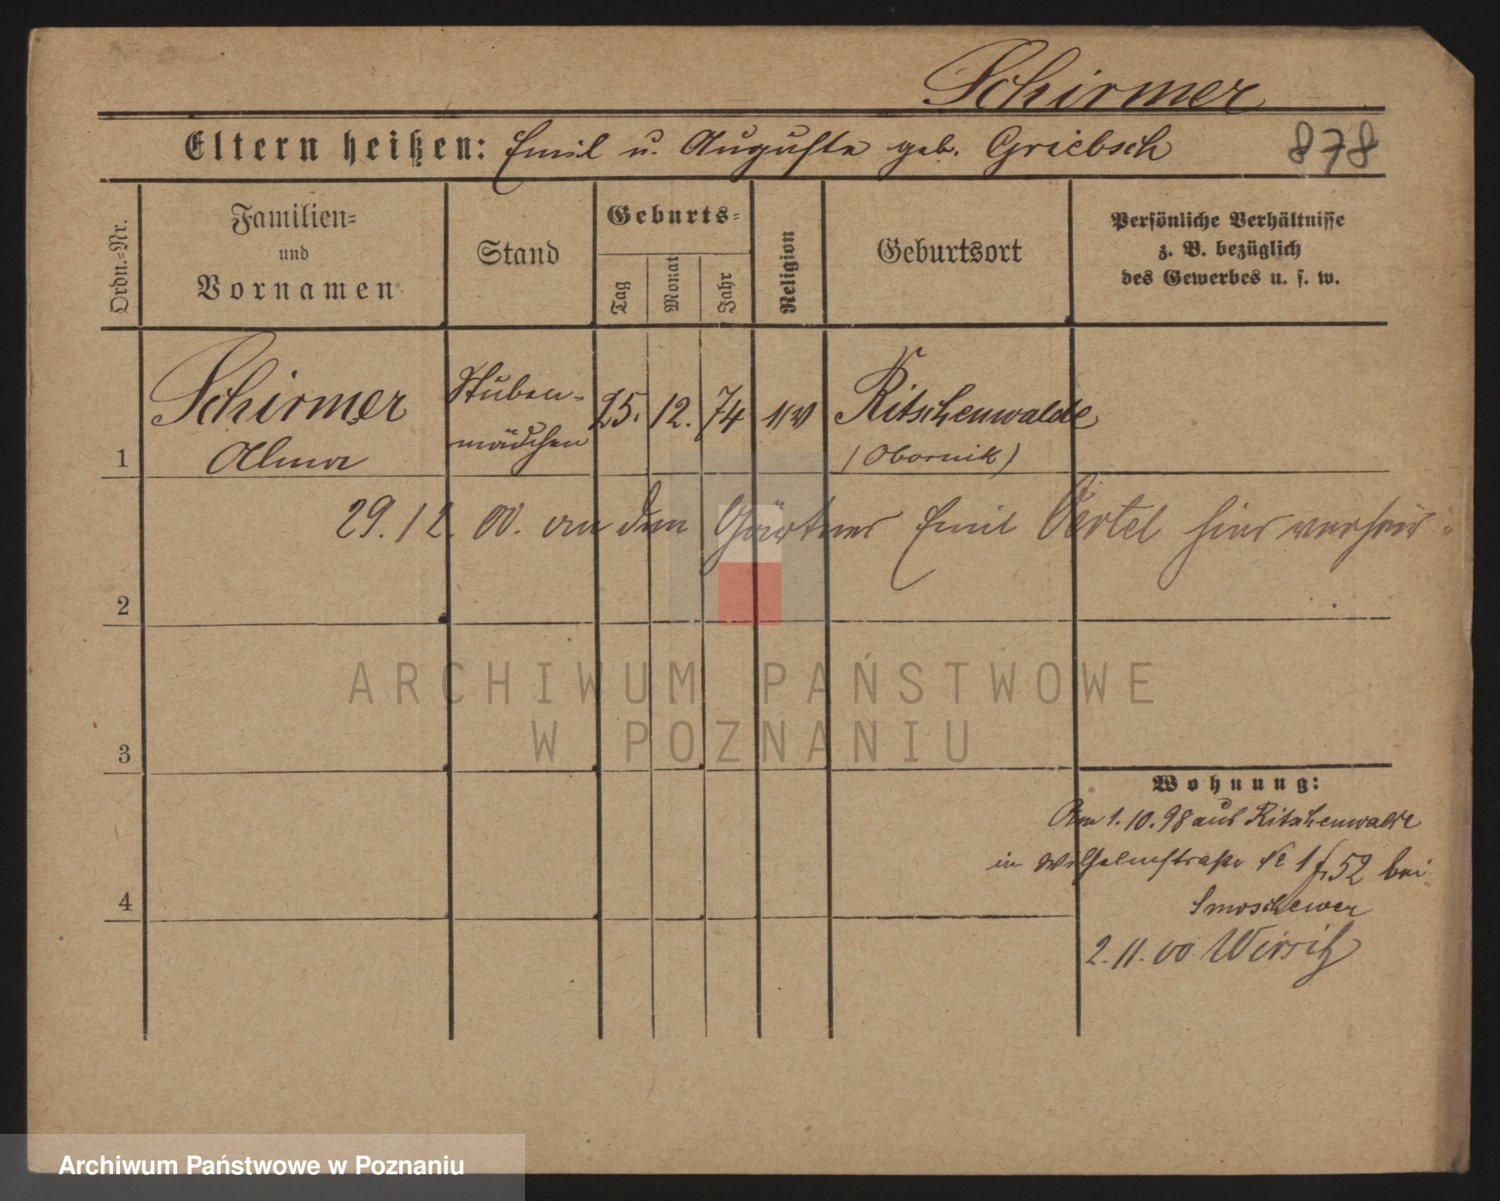 Schirmer
Eltern heißen: Emil u. Auguste geb. Griebsch
878
Ordn.=Nr.
Familien=
und
Vornamen
Stand
Geburts=
Tag
Monat
Jahr
Religion
Geburtsort
Persönliche Verhältnisse
z. B. bezüglich
des Gewerbes u. s. w.
1
Schirmer
Alma
Stuben-
mädchen
25. 12. 74
Ritschenwalde
(Obornik)
29. 12. 00. an den Gärtner Emil Oertel hier verheir-
2
3
4
Wohnung:
Am 1.10.98 aus Ritschenwalde
in Wilhelmstraße № 1 f. 52 bei
Smoschewer
2.11.00 Wirsitz
ARCHIWUM PAŃSTWOWE
W POZNANIU
Archiwum Państwowe w Poznaniu